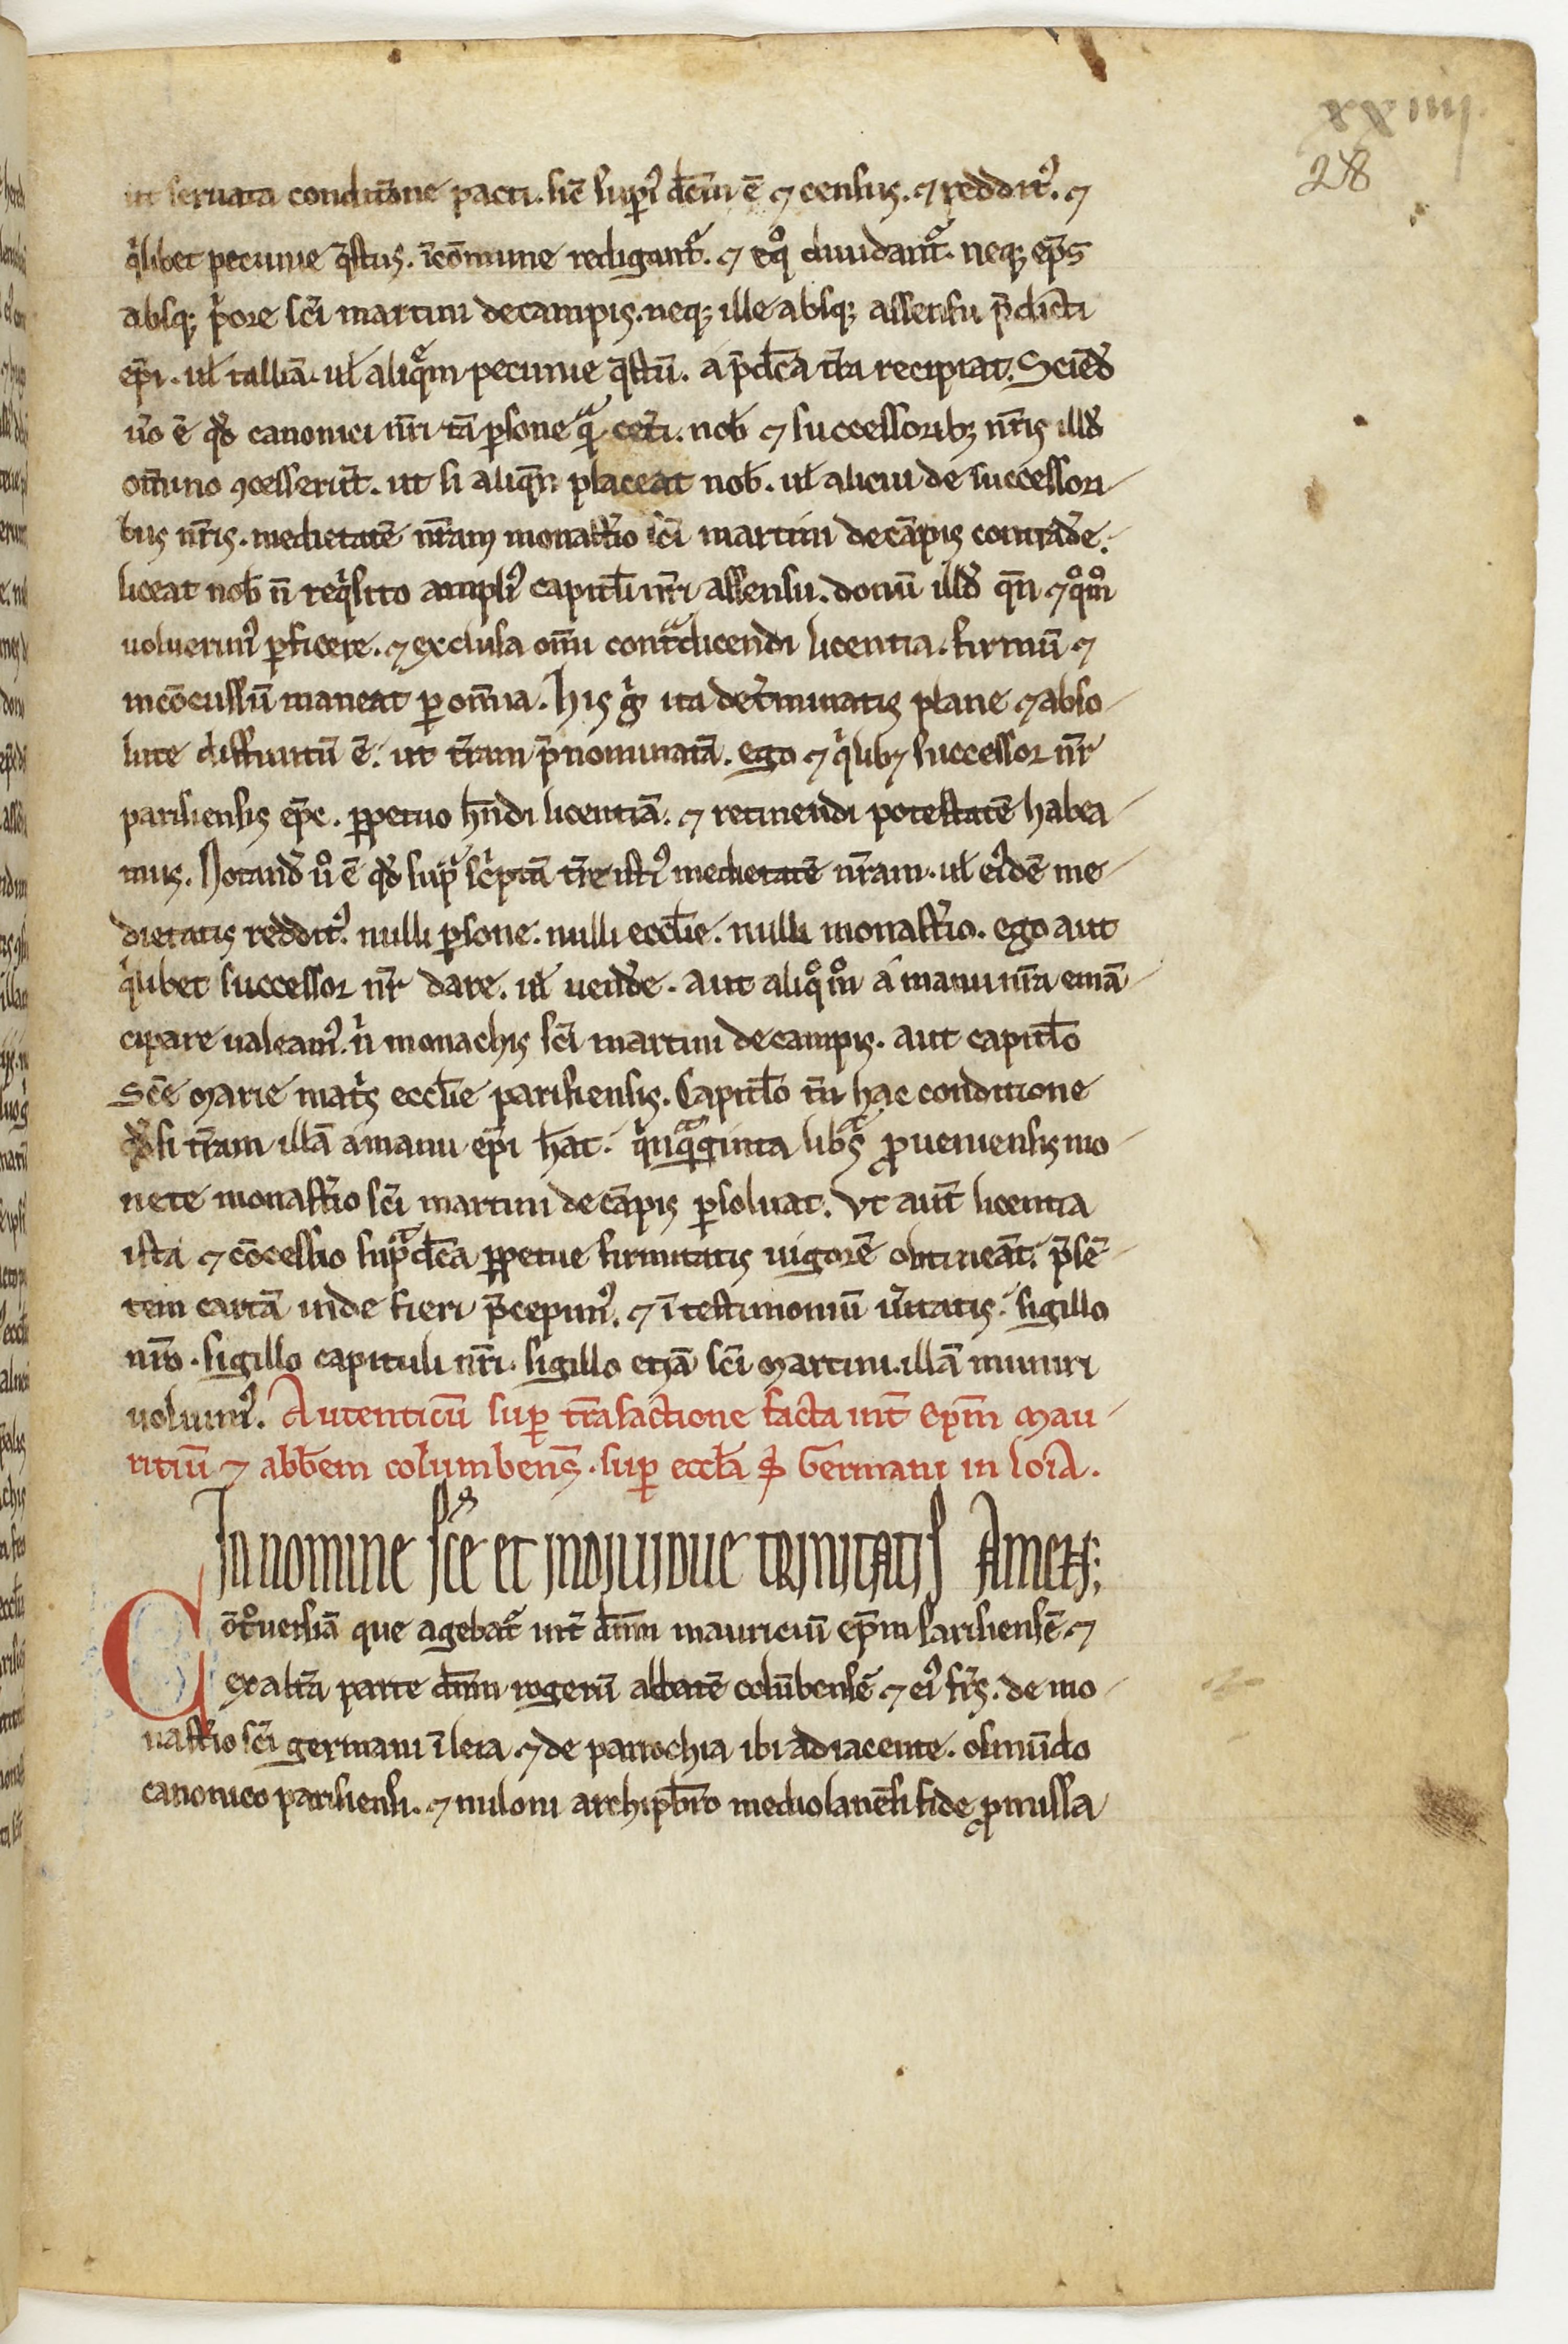 xxiiii.
28
ut seruata conditione pacti. sic̄ supi᷒ dc̄m ē ⁊ census. ⁊ reddit᷒. ⁊
qͥlibet pecunie q̄stus. ī cōmune redigantᷣ. ⁊ eqͦ diuidantᷣ. neqꝫ ep̄s
absqꝫ pͥore sc̄i martini de campis. neqꝫ ille absqꝫ assensu p̄dicti
ep̄i. ul̄ talliā. ul̄ aliqͣm pecunie q̄stū. a p̄dc̄a t̄ra recipiat. Sciēd̄
u̓o ē qd̄ canonici nr̄i tā ꝑsone qͣ cet̓i. nob̄ ⁊ successoribꝫ nr̄is illd̄
om̄ino ꝯcesserūt. ut si aliqn̄ placeat nob̄. ul̄ alicui de successori
bus nr̄is. medietatē nr̄am monast̓io sc̄i martini de cāpis contrad̓e.
liceat nob̄ n̄ reqͥsito ampli᷒ capitl̄i nr̄i assensu. donū illd̄ qn̄ ⁊ qͦmͦ
uoluerim᷒ ꝑficere. ⁊ exclusa om̄i contᷓdicendi licentia. firmū ⁊
incōcussū maneat ꝑ om̄ia. His gͥ ita det̓minatis plane ⁊ abso
lute diffinitū ē. ut t̄ram p̄nominatā. ego ⁊ qͥlibꝫ successor nr̄
parisiensis ep̄c. ꝑpetuo hn̄di licentiā. ⁊ retinendi potestatē habea
mus. Notand̄ uͦ ē qd̄ supᷓ scͥptā t̄re isti᷒ medietatē nr̄am. ul̄ ei᷒dē me
dietatis reddit᷒. nulli ꝑsone. nulli eccl̄ie. nulli monast̓io. ego aut
qͥlibet successor nr̄ dare. ul̄ uend̓e. aut aliqͦmͦ a manu nr̄a emā
cipare ualeam᷒. nͥ monachis sc̄i martini de campis. aut capitl̄o
Sc̄e Marie matͥs eccl̄ie parisiensis. Capitl̄o tn̄ hac conditione
qd̄ si t̄ram illā a manu ep̄i hāt. qͥnqᷓginta libᷓs ꝓueniensis mo
nete monast̓io sc̄i martini de cāpis ꝑsoluat. Vt aut̄ licentia
ista ⁊ cōcessio supᷓdc̄a ꝑpetue firmitatis uigorē obtineāt. p̄sē
tem cartā inde fieri p̄cepim᷒. ⁊ ī testimoniū u̓itatis. sigillo
nr̄o. sigillo capituli nr̄i. sigillo etiā sc̄i Martini. illā muniri
uolum᷒. Autenticū suꝑ tr̄asactione facta int̄ ep̄m Mau
ritiū ⁊ abb̄em columbens̄. suꝑ eccl̄ia S̄ Germani in loia.
In nomine sc̄e et indiuidue trinitatis Amen:
Cōtͦuersiā que agebatᷣ int̄ dn̄m mauriciū ep̄m parisiensē ⁊
ex alt̓a parte dn̄m rogerū abbatē colūbensē ⁊ ei᷒ fr̄s. de mo
nast̓io sc̄i germani ī leia ⁊ de parrochia ibi adiacente. osmūdo
canonico parisiensi. ⁊ miloni archipb̄ro mediolanēsi fide ꝓmissa